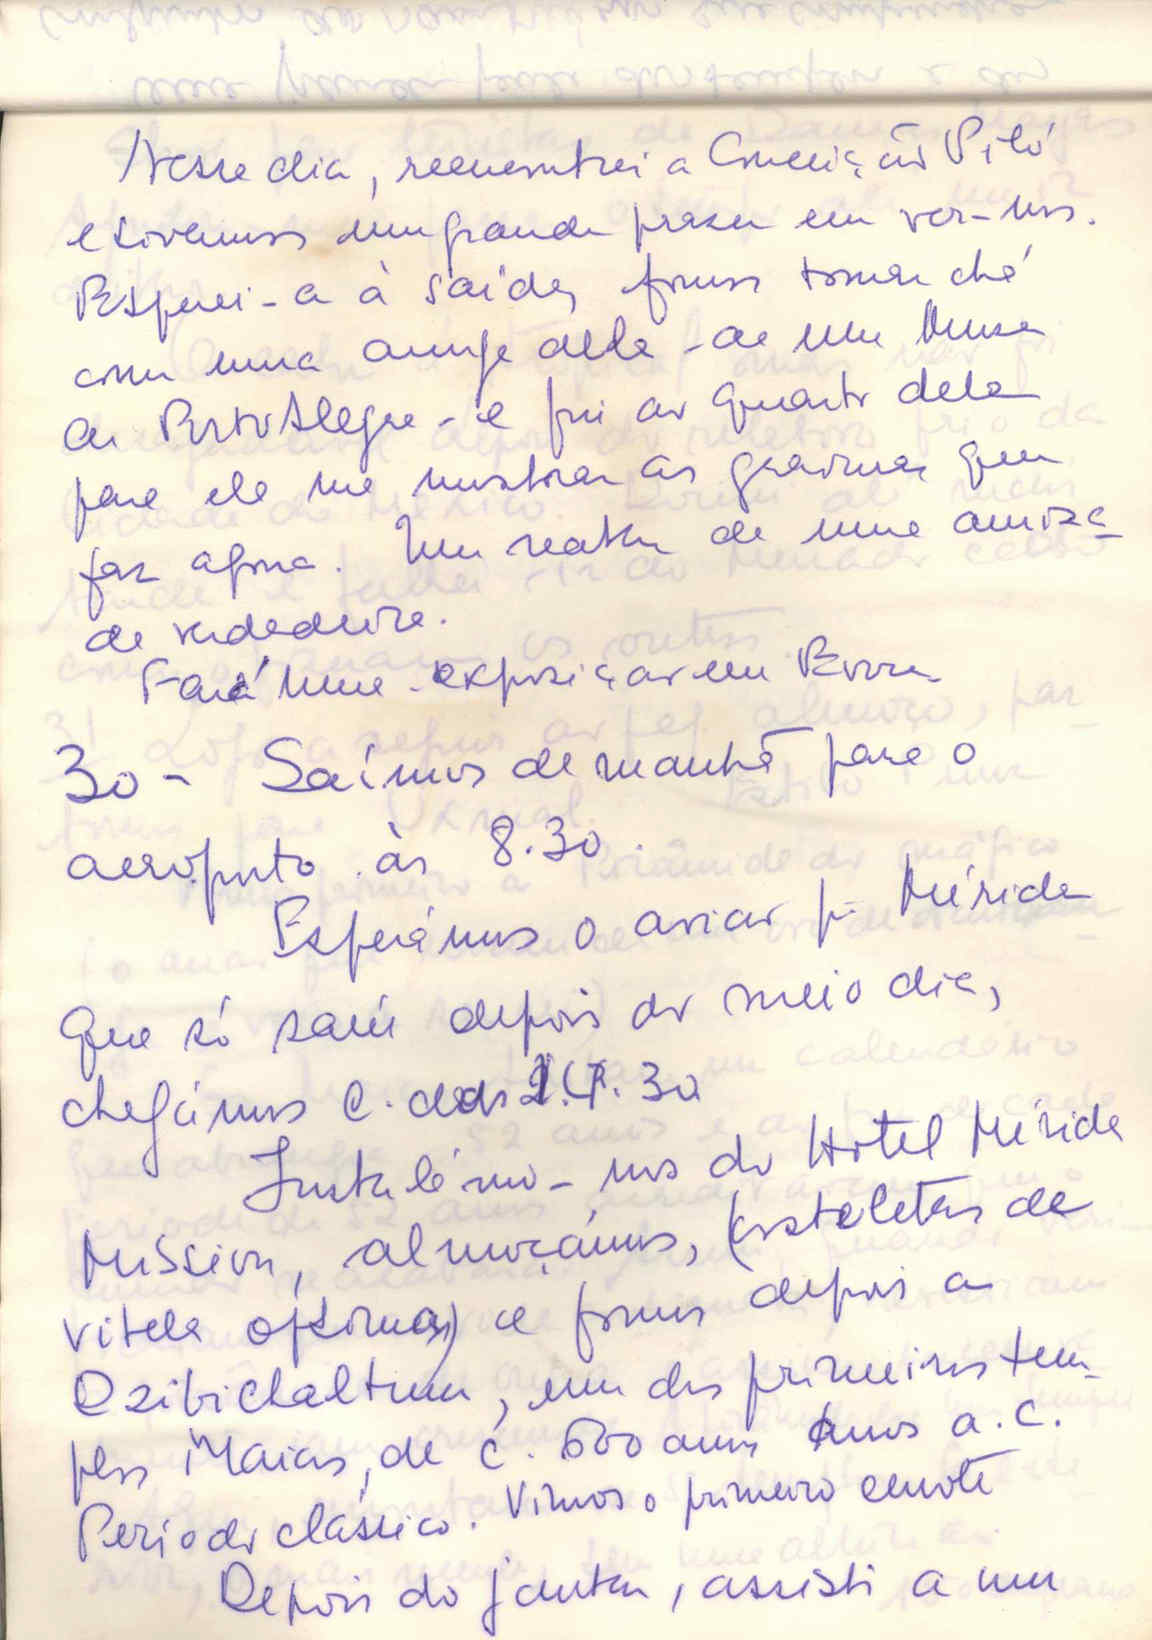 Nesse dia, reencontrei a Conceição Piló
e tivemos um grande prazer em ver-nos.
Esperei-a à saída, fomos tomar chá
com uma amiga dela - de um Museu
de Porto Alegre - e fui ao quarto dela
para ela me mostrar as gravuras que
faz agora. Um reatar de uma amiza-
de verdadeira.
Fará uma exposição em
30 - Saímos de manhã para o
aeroporto às 8.30.
Esperámos o avião p. Mérida
que só saiu depois do meio dia,
chegámos c. das 30
Instalámo-nos do Hotel Mérida
Mission, almoçámos, (costeletas de
vitela óptimas) e fomos depois a
Dzibichaltum, um dos primeiros tem-
plos Maias, de c. 600 anos anos a.C.
Periodo clássico. Vimos o primeiro cenote
Depois do jantar, assisti a um